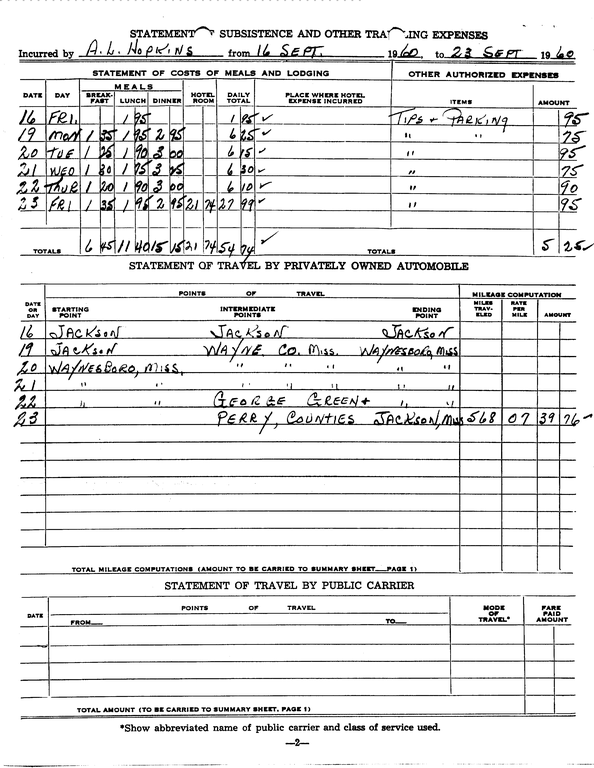 STATEMENT SUBSISTENCE AND OTHER EXPENSES
Incurred by A. L. HOPKINS from 16 SEPT 1960, to 23 SEPT 1960
STATEMENT OF COSTS OF MEALS AND LODGING OTHER AUTHORIZED EXPENSES
DATE DAY MEALS BREAK-FAST LUNCH DINNER HOTEL ROOM DAILY TOTAL PLACE WHERE HOTEL EXPENSE INCURRED ITEMS AMOUNT
16 FRI. 1 95 1 95 ✓ TIPS + PARKING 95
19 MON 1 35 1 95 2 95 6 25 ✓ " " 75
20 TUE 1 25 1 90 3 00 6 15 ✓ " 95
21 WED 1 80 1 75 6 30 ✓ " 75
22 THUR 1 20 1 90 3 00 6 10 ✓ " 90
23 FRI 1 35 1 95 2 95 21 74 27 99 ✓ " 95
TOTALS 6 45 11 40 15 15 21 74 54 74 ✓ TOTALS 5 25 ✓
STATEMENT OF TRAVEL BY PRIVATELY OWNED AUTOMOBILE
DATE OR DAY POINTS OF TRAVEL MILEAGE COMPUTATION
STARTING POINT INTERMEDIATE POINTS ENDING POINT MILES TRAV-ELED RATE PER MILE AMOUNT
16 JACKSON JACKSON JACKSON
19 JACKSON WAYNE CO. MISS. WAYNESBORO, MISS
20 WAYNESBORO, MISS. " " " " "
21 " " " " " " "
22 " " GEORGE GREEN + " "
23 PERRY, COUNTIES JACKSON, MISS 568 07 39 76 ✓
TOTAL MILEAGE COMPUTATIONS (AMOUNT TO BE CARRIED TO SUMMARY SHEET—PAGE 1)
STATEMENT OF TRAVEL BY PUBLIC CARRIER
DATE POINTS OF TRAVEL MODE OF TRAVEL* FARE PAID AMOUNT
FROM— TO—
TOTAL AMOUNT (TO BE CARRIED TO SUMMARY SHEET, PAGE 1)
*Show abbreviated name of public carrier and class of service used.
—2—